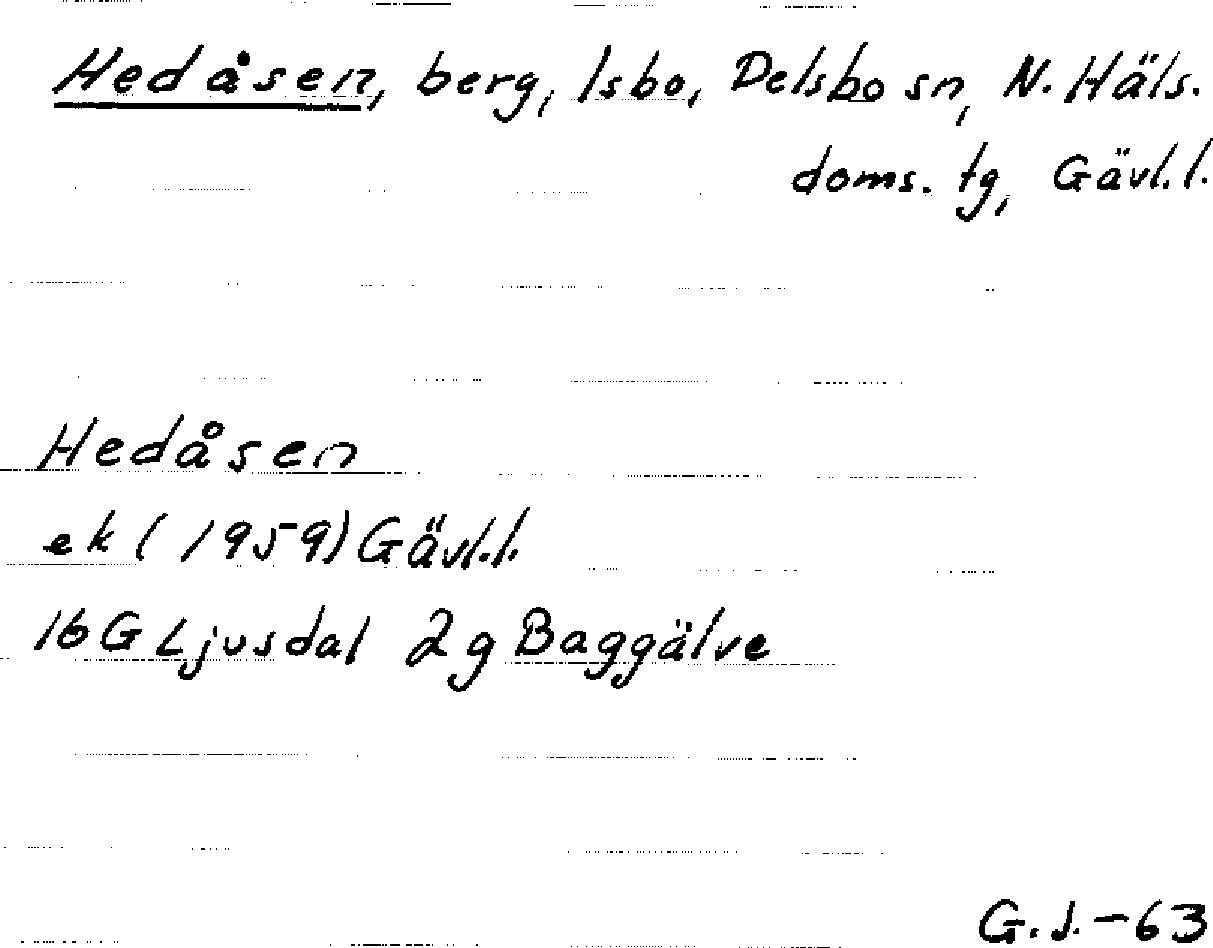 Hedåsen, berg, Isbo, Delsbo sn, N. Häls.
doms. tg, Gävl.l.
Hedåsen
ek (1959) Gävl.l.
16G Ljusdal 2g Baggälve
G.J.-63